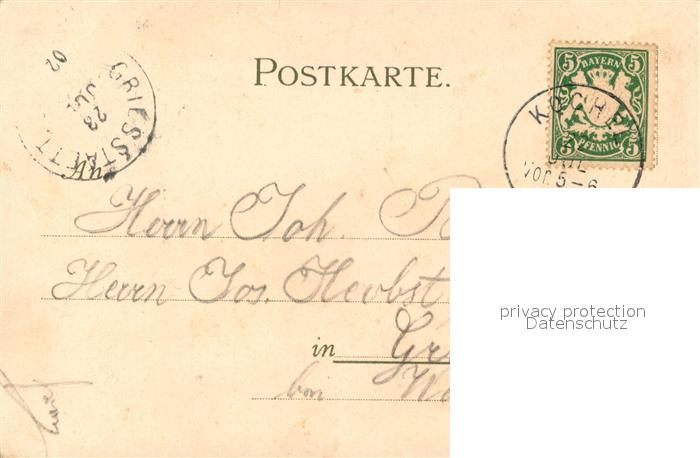 POSTKARTE.
5 BAYERN 5
5 PFENNIG 5
KOCHEL
JUL
VOR. 5-6
GRIESSTAETT
23
JUL
02
An
Herrn Joh.
Herrn Jos. Herbst
in Gr
bei
privacy protection
Datenschutz